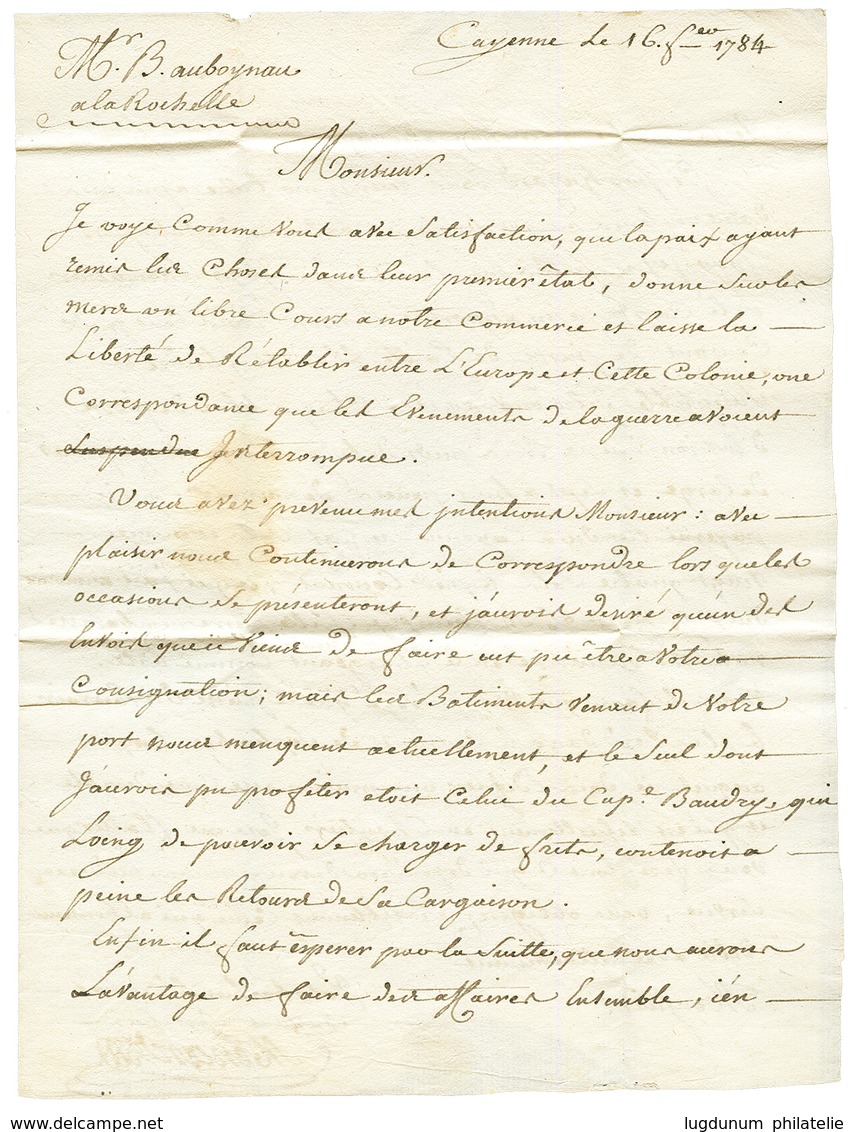 Cayenne le 16. fev 1784
Mr. B. auboynau
a la Rochelle
Monsieur.
Je voye, Comme Vous avec Satisfaction, que la paix ayant
remis les Choses dans leur premier êtat, donne Sur les
mers un libre Cours a notre Commerce et laisse la
Liberté de Rétablir entre L'Europe et Cette Colonie, une
Correspondance que les Evenements de la guerre avoient
Suspendue Interrompue.
Vous avez prevenu mes jntentions Monsieur : avec
plaisir nous Continuerons de Correspondre lors que les
occasions Se présenteront, et j'aurois desiré qu'un des
Envois que je viens de faire eut pu être a Votre
Consignation ; mais les Batiments venant de Votre
port nous menquent actuellement, et le Seul dont
J'aurois pu profiter etoit Celui du Cape. Baudry, qui
Loing de pouvoir Se charger de frets, contenoit a
peine les Retours de Sa Cargaison.
Enfin il faut ésperer par la Suitte, que nous aurons
L'avantage de faire des affaires Ensemble, j'én
www.delcampe.net
lugdunum philatelie